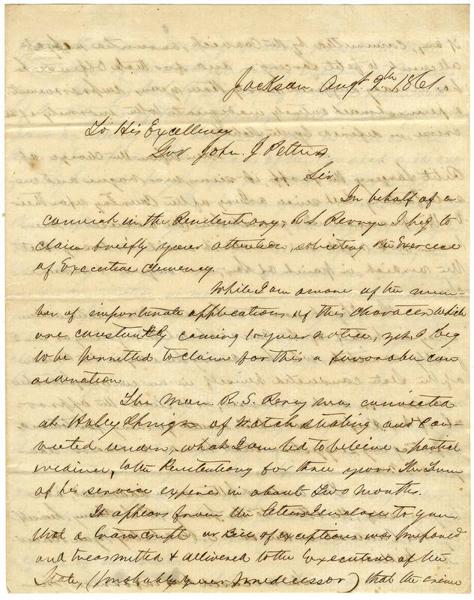 Jackson Augt 9th 1861.
To His Excellency
Gov John. J Pettus
Sir
In behalf of a
convict in the Penitentiary, R. S. Revey I beg to
claim briefly your attention, soliciting the Exercise
of Executive clemency.
While I am aware of the num-
ber of importunate applications of this character which
are constantly coming to your notice, yet I beg
to be permitted to claim for this a favorable con
sideration.
The Man R. S. Revey was convicted
at Holly Springs of Watch stealing and con-
victed under, what I am led to believe, partial
to the Penitentiary for three years. The term
of his service expires in about Two months.
It appears from the letters I enclose to you
that a transcript or Bill of exceptions was prepared
and transmitted & delivered to the Executive of the
State, (probably your predecessor) that the crime